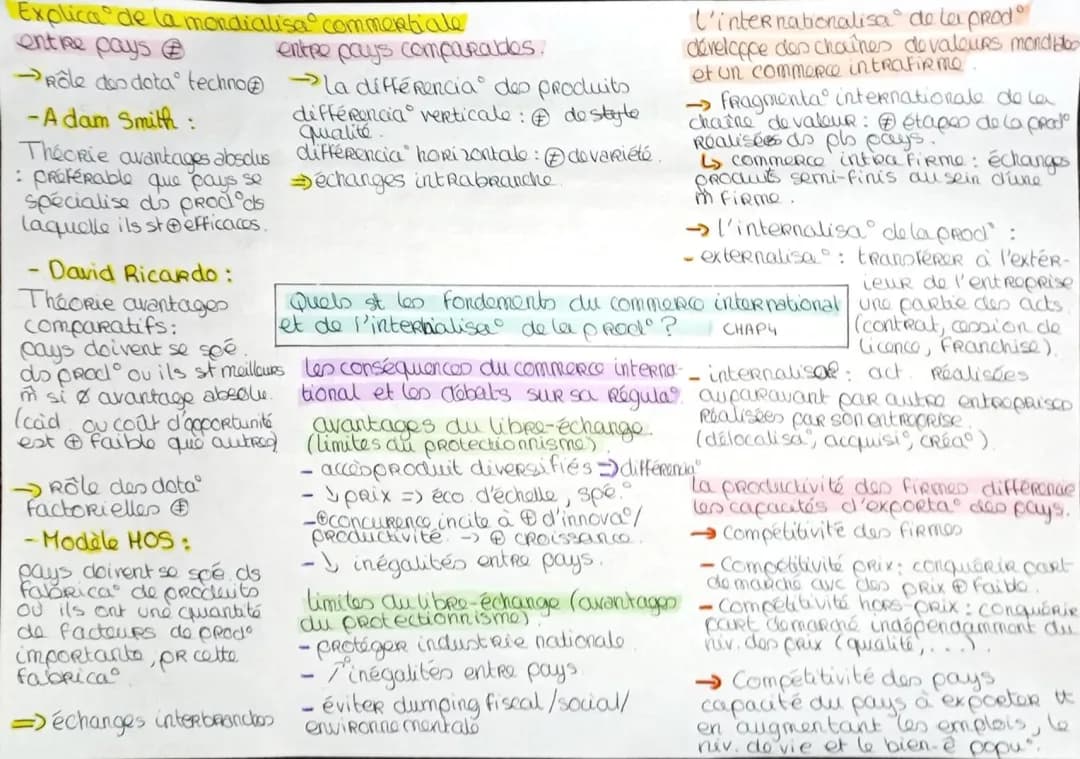 Explica° de la mondialisa° commerciale
entre pays ≠
→ Rôle des dota° techno ≠
- Adam Smith :
Théorie avantages absolus
: préférable que pays se
spécialise ds prod° ds
laquelle ils st ⊕ efficaces.
- David Ricardo :
Théorie avantages
comparatifs :
pays doivent se spé.
ds prod° ou ils st meilleurs
m̂ si ∅ avantage absolu.
(càd. ou coût d'opportunité
est ⊕ faible que autres)
→ Rôle des dota°
factorielles ≠
- Modèle HOS :
pays doivent se spé. ds
fabrica° de produits
où ils ont une quantité
de facteurs de prod°
importants, pr cette
fabrica°
⇒ échanges interbranches
entre pays comparables.
→ la différencia° des produits
différencia° verticale : ≠ de style
qualité.
différencia° horizontale : ≠ de variété.
⇒ échanges intrabranche.
Quels st les fondements du commerce international
et de l'internialisa° de la prod° ? CHAP4
les conséquences du commerce interna-
tional et les débats sur sa régula°.
avantages du libre-échange.
(limites du protectionnisme)
- accès produit diversifiés ⇒ différencia°
- ↓ prix => éco. d'échelle, spé.°
- ⊕ concurence incite à ⊕ d'innova°/
productivité. → ⊕ croissance.
- ↓ inégalités entre pays.
limites du libre-échange (avantages
du protectionnisme)
- protéger industrie nationale
- ↗ inégalités entre pays.
- éviter dumping fiscal/social/
environnementale
L'internationalisa° de la prod°
développe des chaînes de valeurs mondiales
et un commerce intrafirme
→ fragmenta° internationale de la
chaîne de valeur : ≠ étapes de la prod°
réalisées ds pls pays.
↳ commerce intra firme : échanges
produits semi-finis au sein d'une
m̂ firme.
→ l'internalisa° de la prod° :
- externalisa° : transférer à l'extér-
ieur de l'entreprise
une partie des acts.
(contrat, cession de
licence, franchise).
- internaliser : act. réalisées
auparavant par autre entreprises
réalisées par son entreprise.
(délocalisa°, acquisi°, créa°).
la productivité des firmes différencie
les capacités d'exporta° des pays.
→ Compétitivité des firmes
- Compétitivité prix : conquérir part
de marché avc des prix ⊕ faible.
- Compétitivité hors-prix : conquérir
part de marché indépendamment du
niv. des prix (qualité,...).
→ Compétitivité des pays
capacité du pays à exporter tt
en augmentant les emplois, le
niv. de vie et le bien-ê popu°.